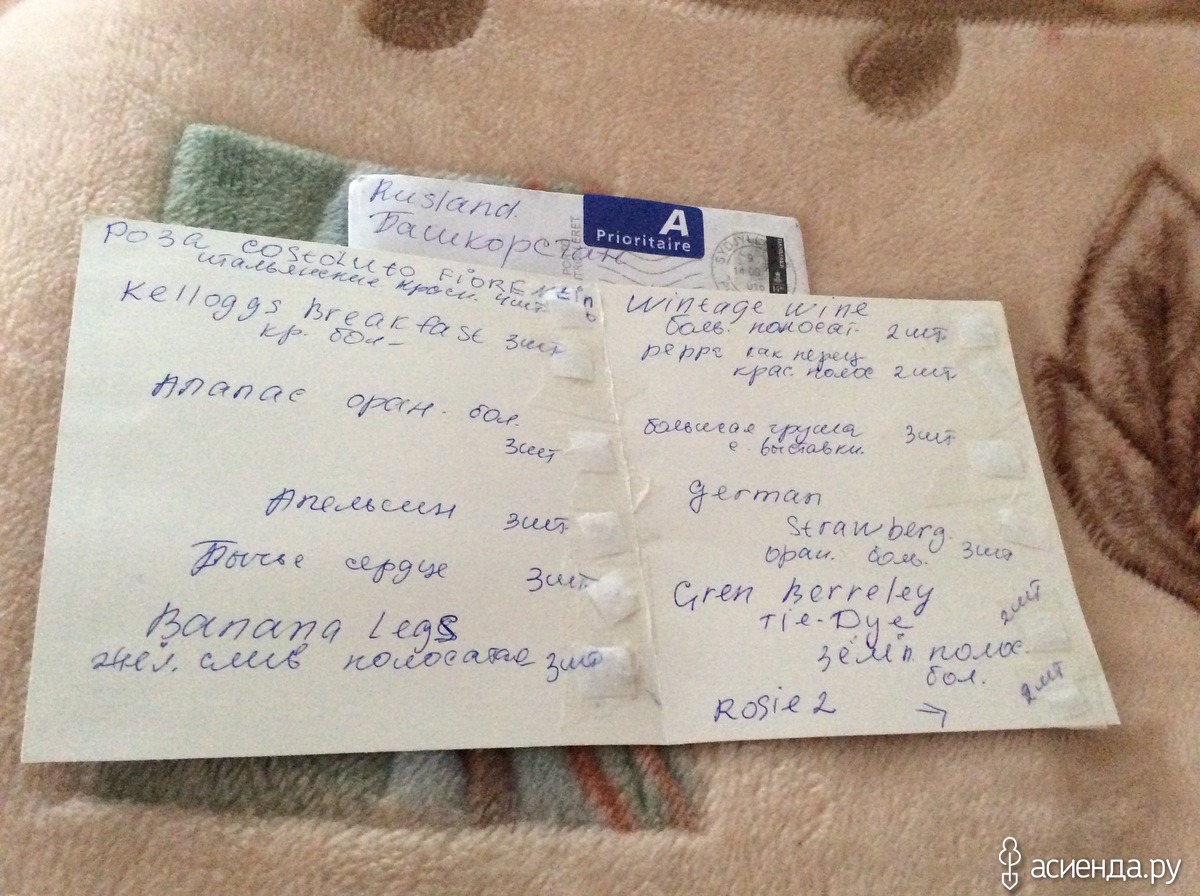 Rusland.
Башкорстан
A
Prioritaire
роза costoluto FIORENtino
итальянские красн. 4шт.
Kelloggs Breakfast 3шт
кр. бол-
Апапас оран. бол.
3шт
Апельсин 3шт
Бычье сердце 3шт.
Banana Legs
жёл. слив полосатае 3шт
Wintage Wine
боль. полосат. 2шт.
рерре как перец
крас. полос 2шт
большая груша 3шт
с выставки.
german
Strawberg.
оран. боль. 3шт
Gren Berreley
Tie-Dye 2шт
зёмп. полос.
бол.
Rosie 2 → 2шт
асиенда.ру